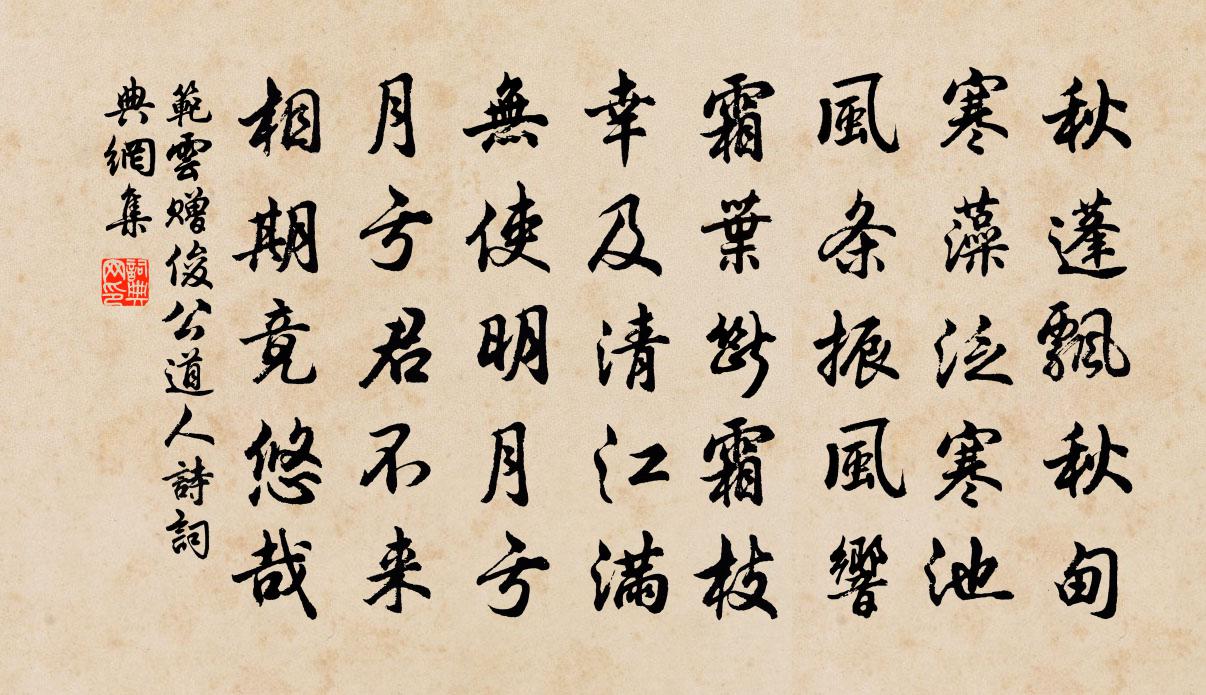 秋蓬飄秋甸
寒藻泛寒池
風条振風響
霜葉斷霜枝
幸及清江滿
無使明月亏
月亏君不来
相期竟悠哉
範雲赠俊公道人詩詞
典網集
詞典
网印